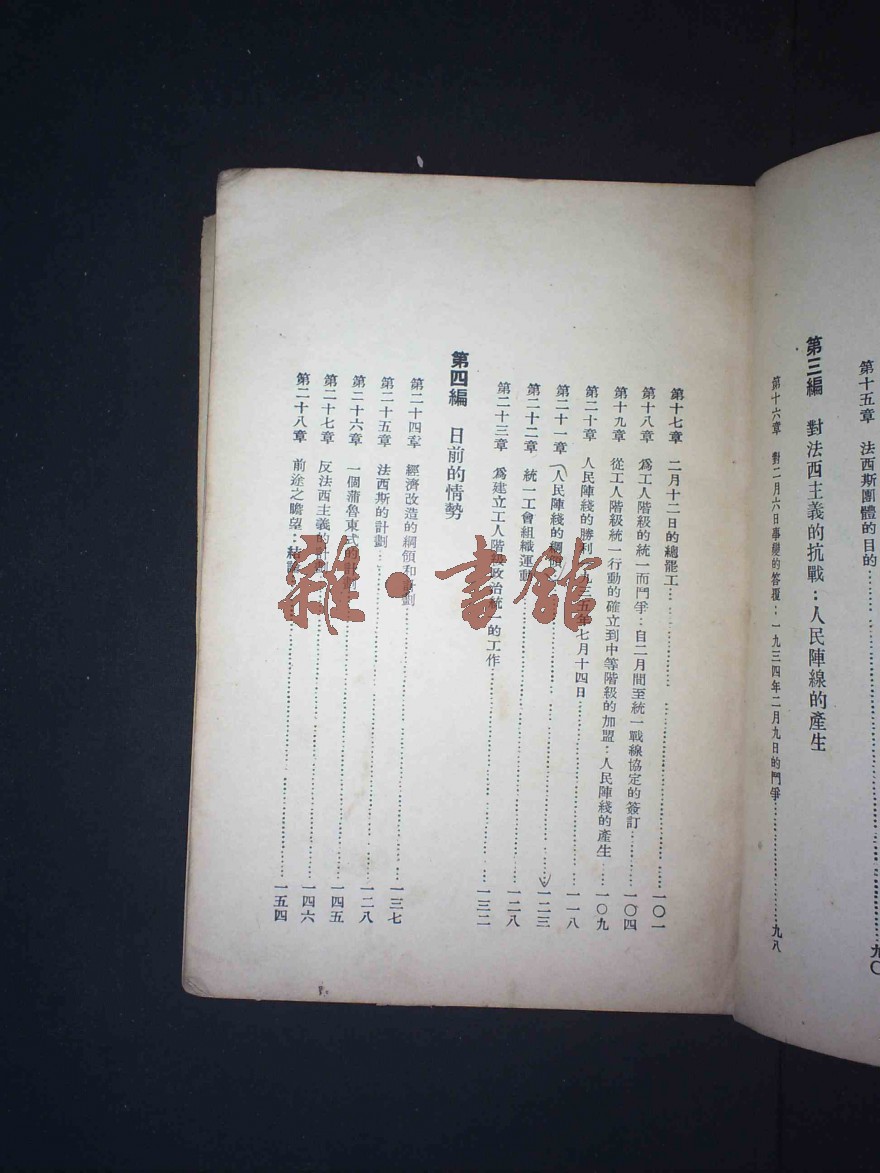 第十五章　法西斯團體的目的…………九〇
第三編　對法西主義的抗戰：人民陣線的產生
第十六章　對二月六日事變的答覆：一九三四年二月九日的鬥爭…………九八
第十七章　二月十二日的總罷工…………一〇一
第十八章　爲工人階級的統一而鬥爭：自二月間至統一戰線協定的簽訂…………一〇四
第十九章　從工人階級統一行動的確立到中等階級的加盟：人民陣綫的產生…………一〇九
第二十章　人民陣綫的勝利　九三五年七月十四日…………一一八
第二十一章　人民陣綫的綱領…………一二三
第二十二章　統一工會組織運動…………一二八
第二十三章　爲建立工人階級政治統一的工作…………一三二
第四編　日前的情勢
第二十四章　經濟改造的綱領和計劃…………一三七
第二十五章　法西斯的計劃…………一二八
第二十六章　一個蒲魯東式的計劃…………一四五
第二十七章　反法西主義的計劃…………一四六
第二十八章　前途之瞻望：結…………一五四
雜·書館